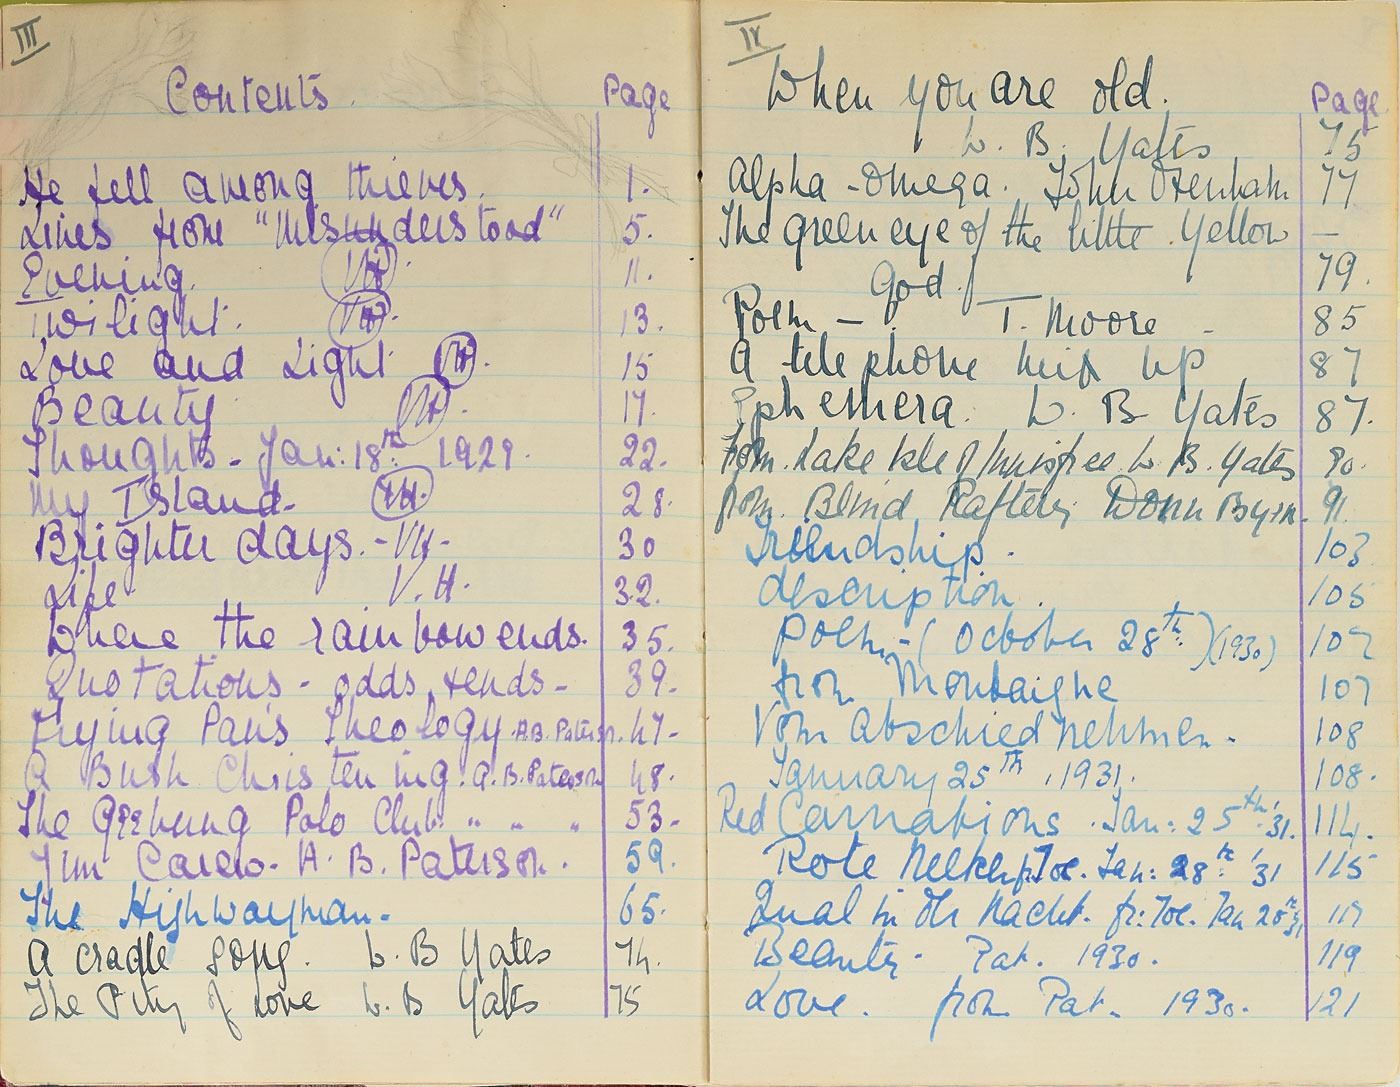 III
Contents. Page
He fell among thieves. 1.
Lines from "Misunderstood" 5.
Evening. VH. 11.
Twilight. VH. 13.
Love and Light VH. 15
Beauty VH. 17.
Thoughts - Jan: 18th 1929. 22.
My Island. VH. 28.
Brighter days. - VH - 30
Life V. H. 32.
Where the rainbow ends. 35.
Quotations - odds & ends - 39.
Frying Pan's Theology. A.B. Paterson. 47 -
A Bush Christening. A. B. Paterson 48.
The Geebung Polo Club. " " " 53.
Jim Carew. A. B. Paterson. 59.
The Highwayman. 65.
A cradle song. W. B Yates 74.
The Pity of Love W. B Yates 75
IV
When you are old. Page
W. B. Yates 75
Alpha - Omega. John Oxenham 77
The green eye of the little Yellow —
God. 79.
Poem - T. Moore - 85
A telephone mix up 87
Ephemera. W. B Yates 87.
from. Lake Isle of Innisfree W. B. Yates 90.
from. Blind Raftery Donn Byrn. 91.
friendship. 103
description. 105
Poem - (October 28th) (1930) 107
from Montaigne 107
Vom Abschiednehmen. 108
January 25th, 1931. 108.
Red Carnations. Jan: 25th '31. 114.
Rote Nelken Joe. Jan: 28th '31 115
Qual in der Nacht. fr: Joe. Jan 28th 31 117
Beauty. Pat. 1930. 119
Love. from Pat. 1930. 121